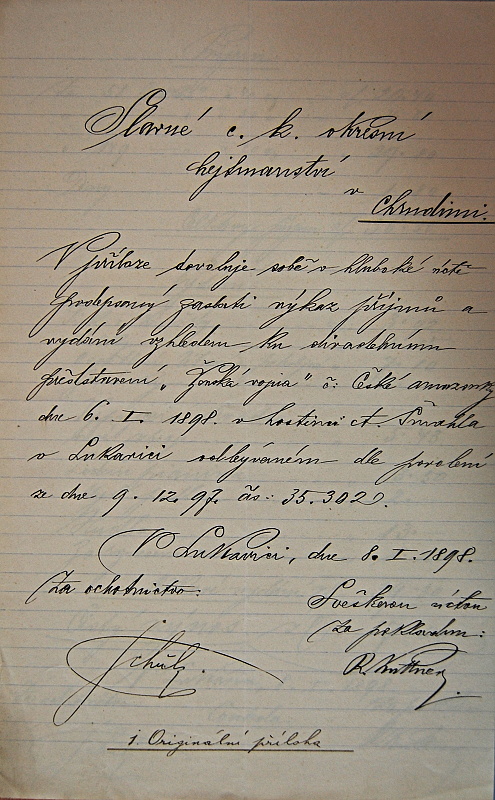 Slavné c. k. okresní
hejtmanství
v
Chrudimi.
V příloze dovoluje sobě v hluboké úctě
podepsaný zaslati výkaz příjmů a
vydání vzhledem ku divadelnímu
představení „Ženská vojna" č: České amazonky
dne 6. I. 1898. v hostinci ct. Šmahla
v Lukavici odbývaném dle povolení
ze dne 9. 12. 97. čís: 35.302.
V Lukavici, dne 8. I. 1898.
Za ochotnictvo:
Sveškerou úctou
Za pokladnu:
Schulz.
R. Kuttner
1. Originální příloha